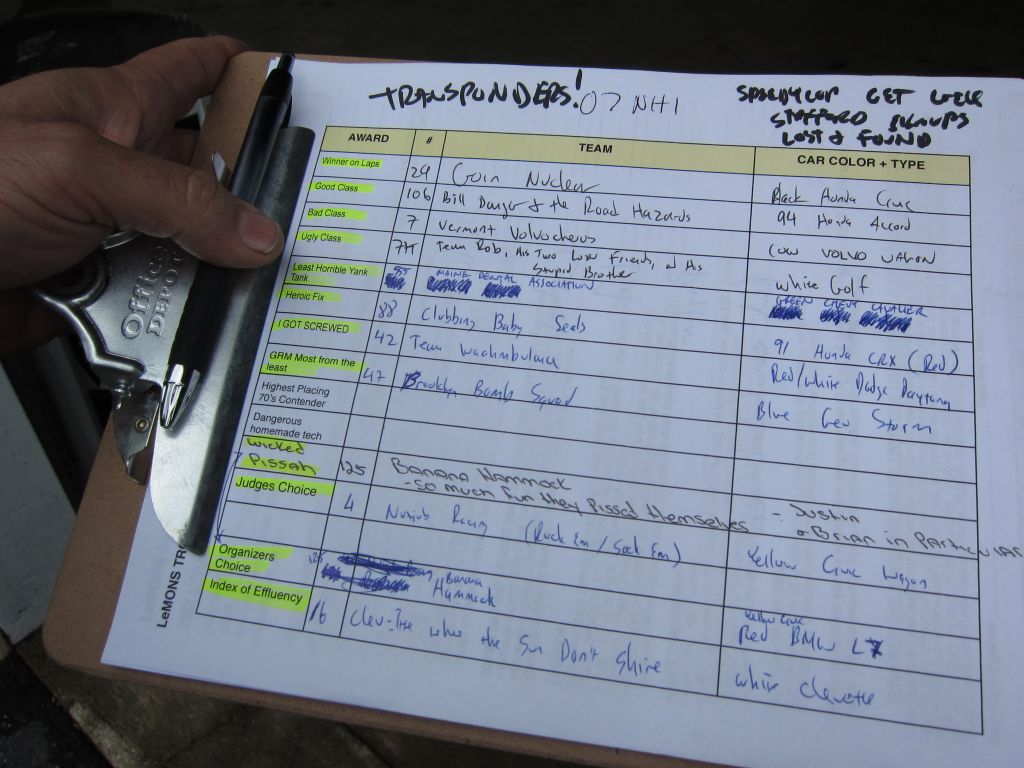 TRANSPONDERS! 07 NH1
SPEEDYCOP GET WELL
STAFFORD SIGNUPS
LOST & FOUND
AWARD # TEAM CAR COLOR + TYPE
Winner on Laps 29 Goin Nuclear Black Honda Civic
Good Class 106 Bill Danger & the Road Hazards 94 Honda Accord
Bad Class 7 Vermont Volvocheros COW VOLVO WAGON
Ugly Class 77 Team Rob, His Two Low Friends, and His Stupid Brother White Golf
Least Horrible Yank Tank 55 MAINE DENTAL ASSOCIATION GREEN CHEVY CAVALIER
Heroic Fix 88 Clubbing Baby Seals 91 Honda CRX (Red)
I GOT SCREWED 42 Team Wachmbulance Red/White Dodge Daytona
GRM Most from the least 47 Brooklyn Bomb Squad Blue Geo Storm
Highest Placing 70's Contender
Dangerous homemade tech
Wicked Pissah 125 Banana Hammock - Justin
- SO much fun they pissed themselves & Brian in Particular
Judges Choice 4 Nunjub Racing (Ruck Em / Sock Em) Yellow Civic Wagon
Organizers Choice 125 Banana Hammock Yellow Civic
Red BMW L7
Index of Effluency 16 Clev-Ite who the Sun Don't Shine White Chevette
LeMONS TR
Office DEPOT